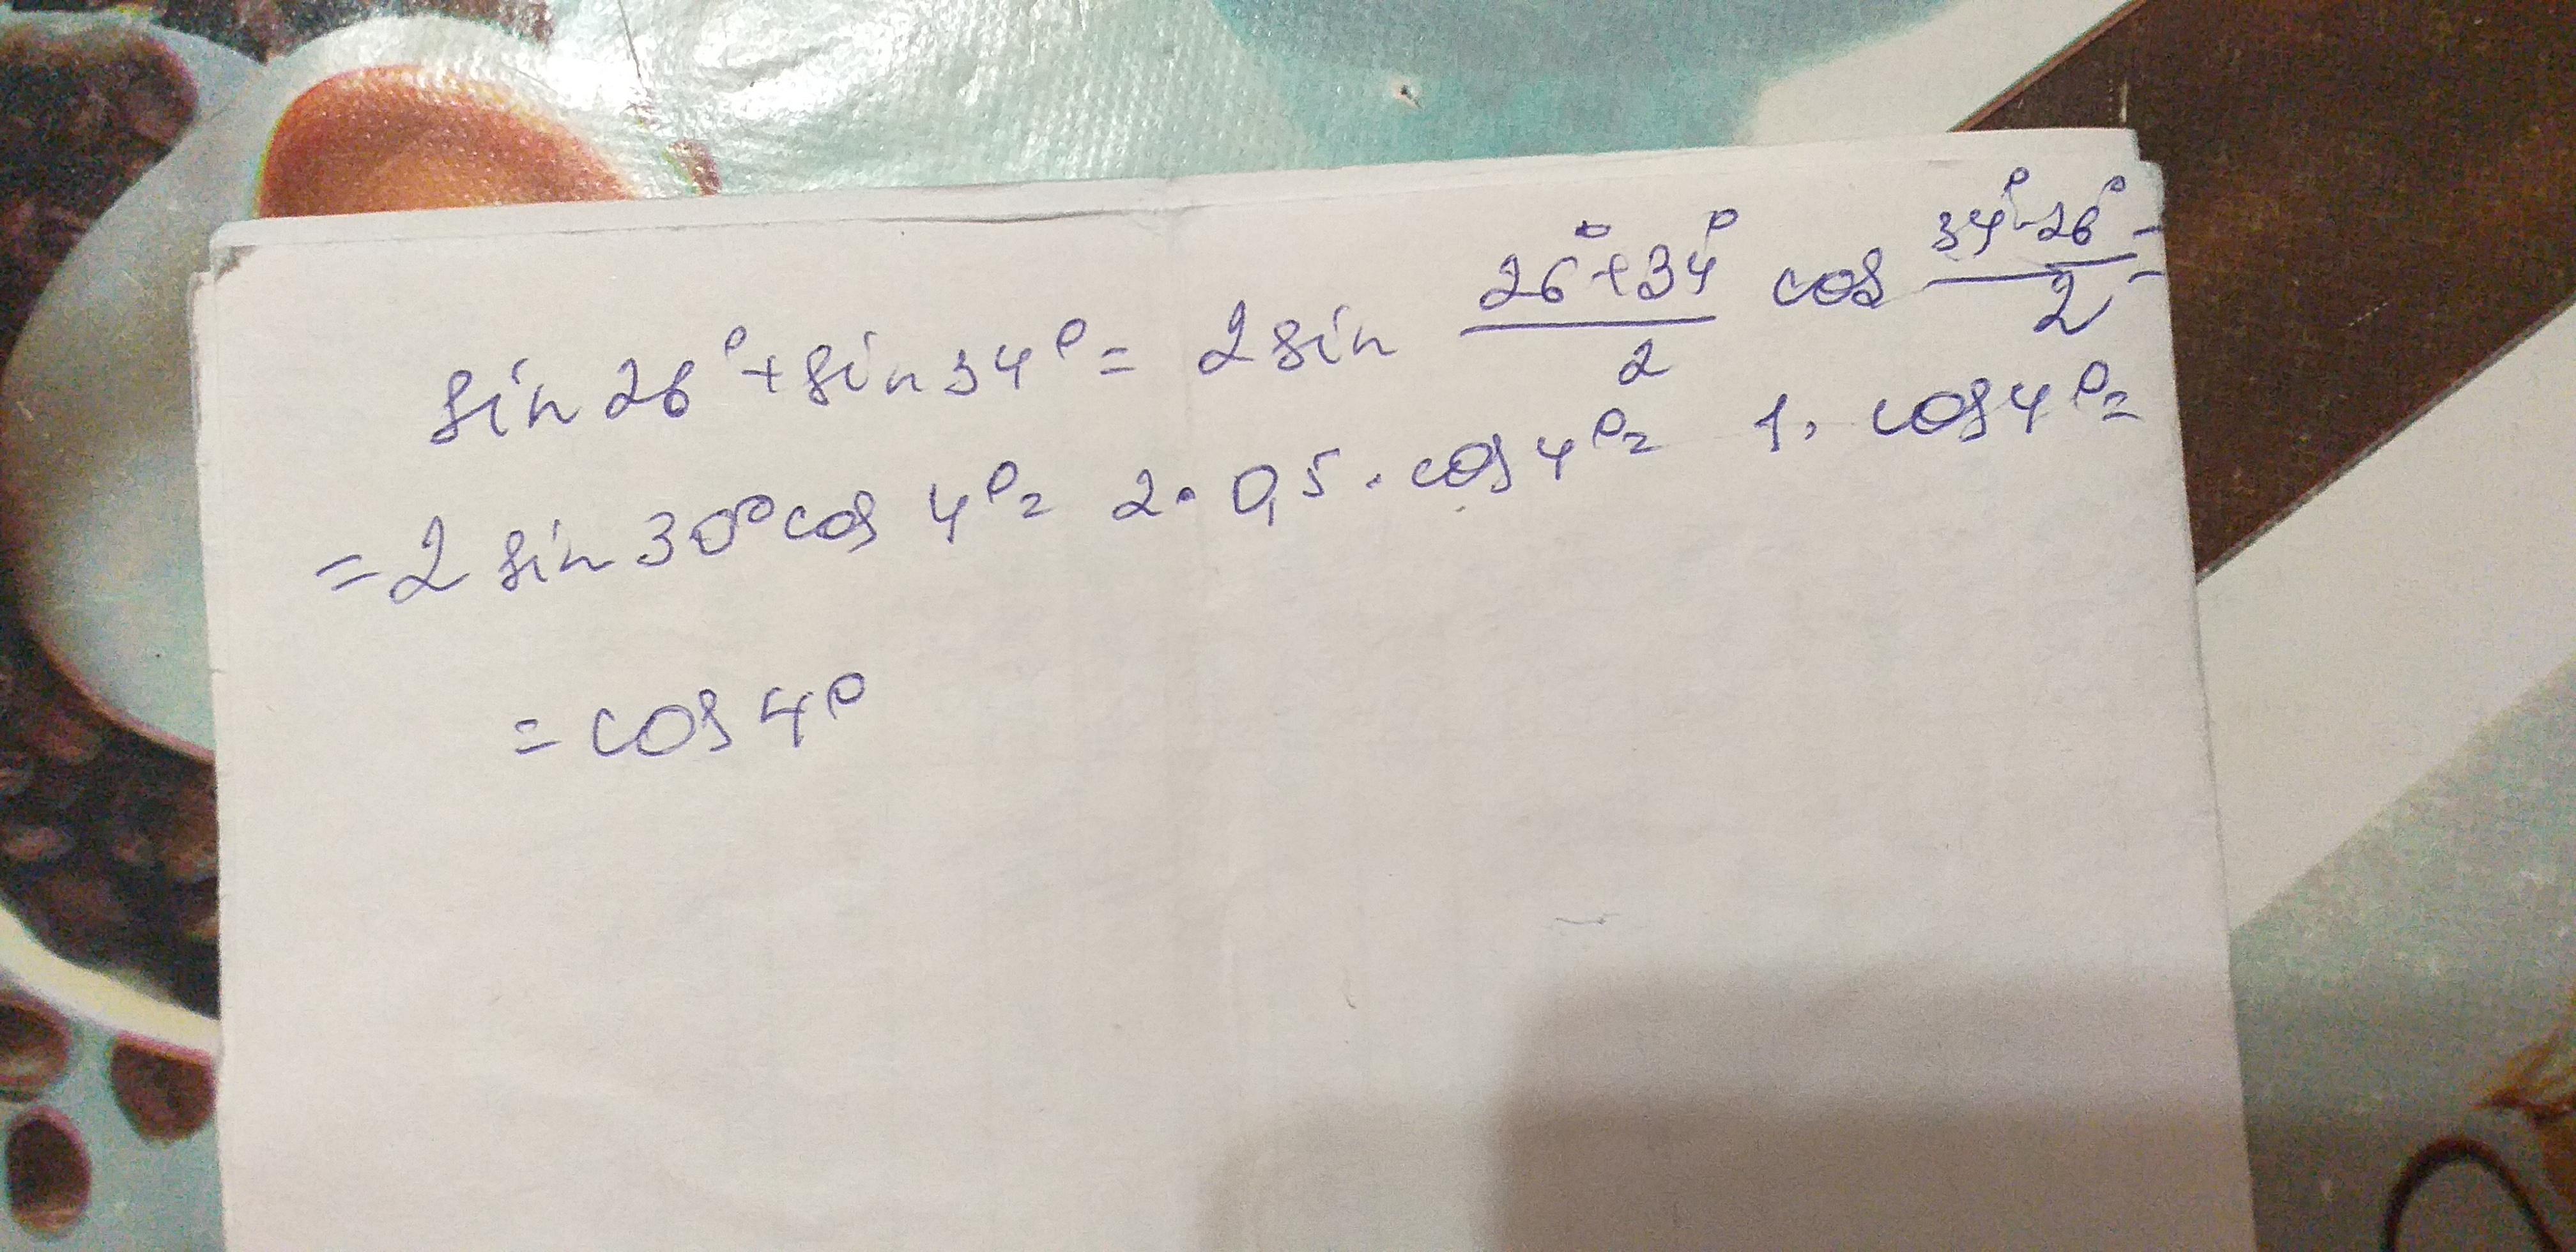 sin 26° + sin 34° = 2 sin (26° + 34°)/2 cos (34° - 26°)/2 =
= 2 sin 30° cos 4° = 2 · 0,5 · cos 4° = 1 · cos 4° =
= cos 4°